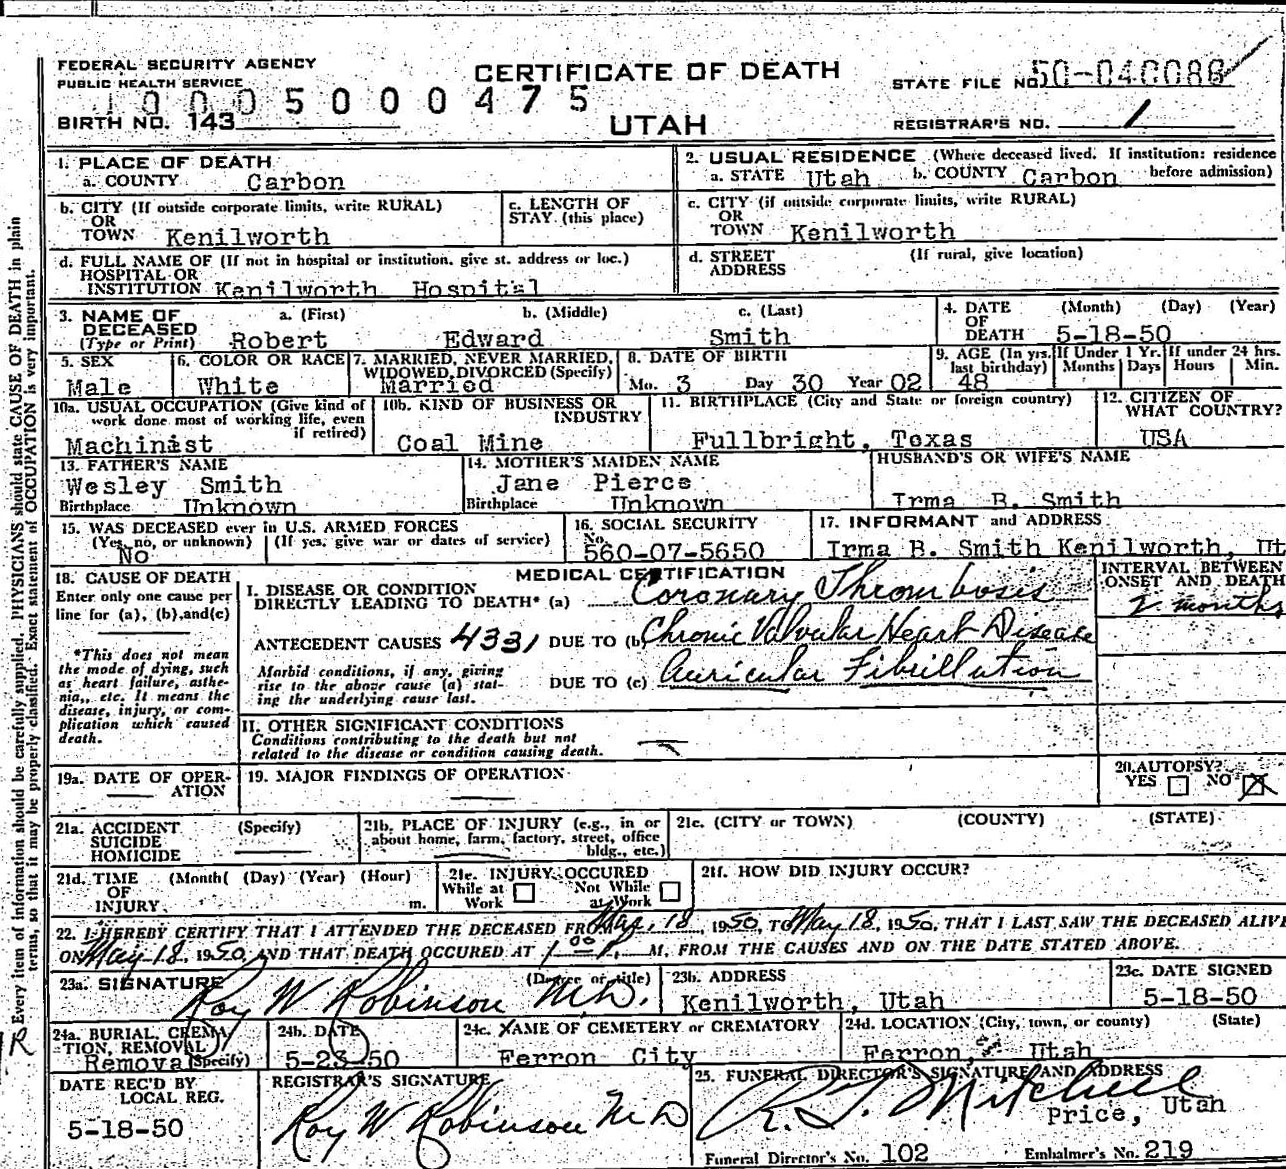 FEDERAL SECURITY AGENCY
PUBLIC HEALTH SERVICE
CERTIFICATE OF DEATH
UTAH
STATE FILE NO. 50-040088
10005000475
BIRTH NO. 143
REGISTRAR'S NO. 1
1. PLACE OF DEATH
a. COUNTY Carbon
2. USUAL RESIDENCE (Where deceased lived. If institution: residence before admission)
a. STATE Utah b. COUNTY Carbon
b. CITY (If outside corporate limits, write RURAL)
OR
TOWN Kenilworth
c. LENGTH OF
STAY (this place)
c. CITY (if outside corporate limits, write RURAL)
OR
TOWN Kenilworth
d. FULL NAME OF (If not in hospital or institution, give st. address or loc.)
HOSPITAL OR
INSTITUTION Kenilworth Hospital
d. STREET (If rural, give location)
ADDRESS
3. NAME OF a. (First) b. (Middle) c. (Last)
DECEASED
(Type or Print) Robert Edward Smith
4. DATE (Month) (Day) (Year)
OF
DEATH 5-18-50
5. SEX
Male
6. COLOR OR RACE
White
7. MARRIED, NEVER MARRIED,
WIDOWED, DIVORCED (Specify)
Married
8. DATE OF BIRTH
Mo. 3 Day 30 Year 02
9. AGE (In yrs. last birthday)
48
If Under 1 Yr.
Months Days
If under 24 hrs.
Hours Min.
10a. USUAL OCCUPATION (Give kind of
work done most of working life, even
if retired)
Machinist
10b. KIND OF BUSINESS OR
INDUSTRY
Coal Mine
11. BIRTHPLACE (City and State or foreign country)
Fullbright, Texas
12. CITIZEN OF
WHAT COUNTRY?
USA
13. FATHER'S NAME
Wesley Smith
Birthplace Unknown
14. MOTHER'S MAIDEN NAME
Jane Pierce
Birthplace Unknown
HUSBAND'S OR WIFE'S NAME
Irma B. Smith
15. WAS DECEASED ever in U.S. ARMED FORCES
(Yes, no, or unknown) (If yes, give war or dates of service)
No
16. SOCIAL SECURITY
No.
560-07-5650
17. INFORMANT and ADDRESS
Irma B. Smith Kenilworth, Ut
18. CAUSE OF DEATH
Enter only one cause per
line for (a), (b), and (c)
*This does not mean
the mode of dying, such
as heart failure, asthe-
nia,, etc. It means the
disease, injury, or com-
plication which caused
death.
MEDICAL CERTIFICATION
I. DISEASE OR CONDITION
DIRECTLY LEADING TO DEATH* (a) Coronary Thrombosis
ANTECEDENT CAUSES 4331 DUE TO (b) Chronic Valvular Heart Disease
Morbid conditions, if any, giving
rise to the above cause (a) stat-
ing the underlying cause last.
DUE TO (c) Auricular Fibrillution
II. OTHER SIGNIFICANT CONDITIONS
Conditions contributing to the death but not
related to the disease or condition causing death.
INTERVAL BETWEEN
ONSET AND DEATH
2 months
19a. DATE OF OPER-
ATION
19. MAJOR FINDINGS OF OPERATION
20. AUTOPSY?
YES NO X
21a. ACCIDENT (Specify)
SUICIDE
HOMICIDE
21b. PLACE OF INJURY (e.g., in or
about home, farm, factory, street, office
bldg., etc.)
21c. (CITY or TOWN) (COUNTY) (STATE)
21d. TIME (Month( (Day) (Year) (Hour)
OF
INJURY m.
21e. INJURY OCCURED
While at Work Not While at Work
21f. HOW DID INJURY OCCUR?
22. I HEREBY CERTIFY THAT I ATTENDED THE DECEASED FROM Mar, 18, 1950, TO May 18, 1950, THAT I LAST SAW THE DECEASED ALIVE
ON May 18, 1950, AND THAT DEATH OCCURED AT 1 00 P. M, FROM THE CAUSES AND ON THE DATE STATED ABOVE.
23a. SIGNATURE (Degree or title)
Roy W Robinson M.D.
23b. ADDRESS
Kenilworth, Utah
23c. DATE SIGNED
5-18-50
24a. BURIAL, CREMA-
TION, REMOVAL
Removal (Specify)
24b. DATE
5-23-50
24c. NAME OF CEMETERY or CREMATORY
Ferron City
24d. LOCATION (City, town, or county) (State)
Ferron, Utah
DATE REC'D BY
LOCAL REG.
5-18-50
REGISTRAR'S SIGNATURE
Roy W Robinson M D
25. FUNERAL DIRECTOR'S SIGNATURE AND ADDRESS
R. T. Mitchell
Price, Utah
Funeral Director's No. 102 Embalmer's No. 219
Every item of information should be carefully supplied. PHYSICIANS should state CAUSE OF DEATH in plain
terms, so that it may be properly classified. Exact statement of OCCUPATION is very important.
R